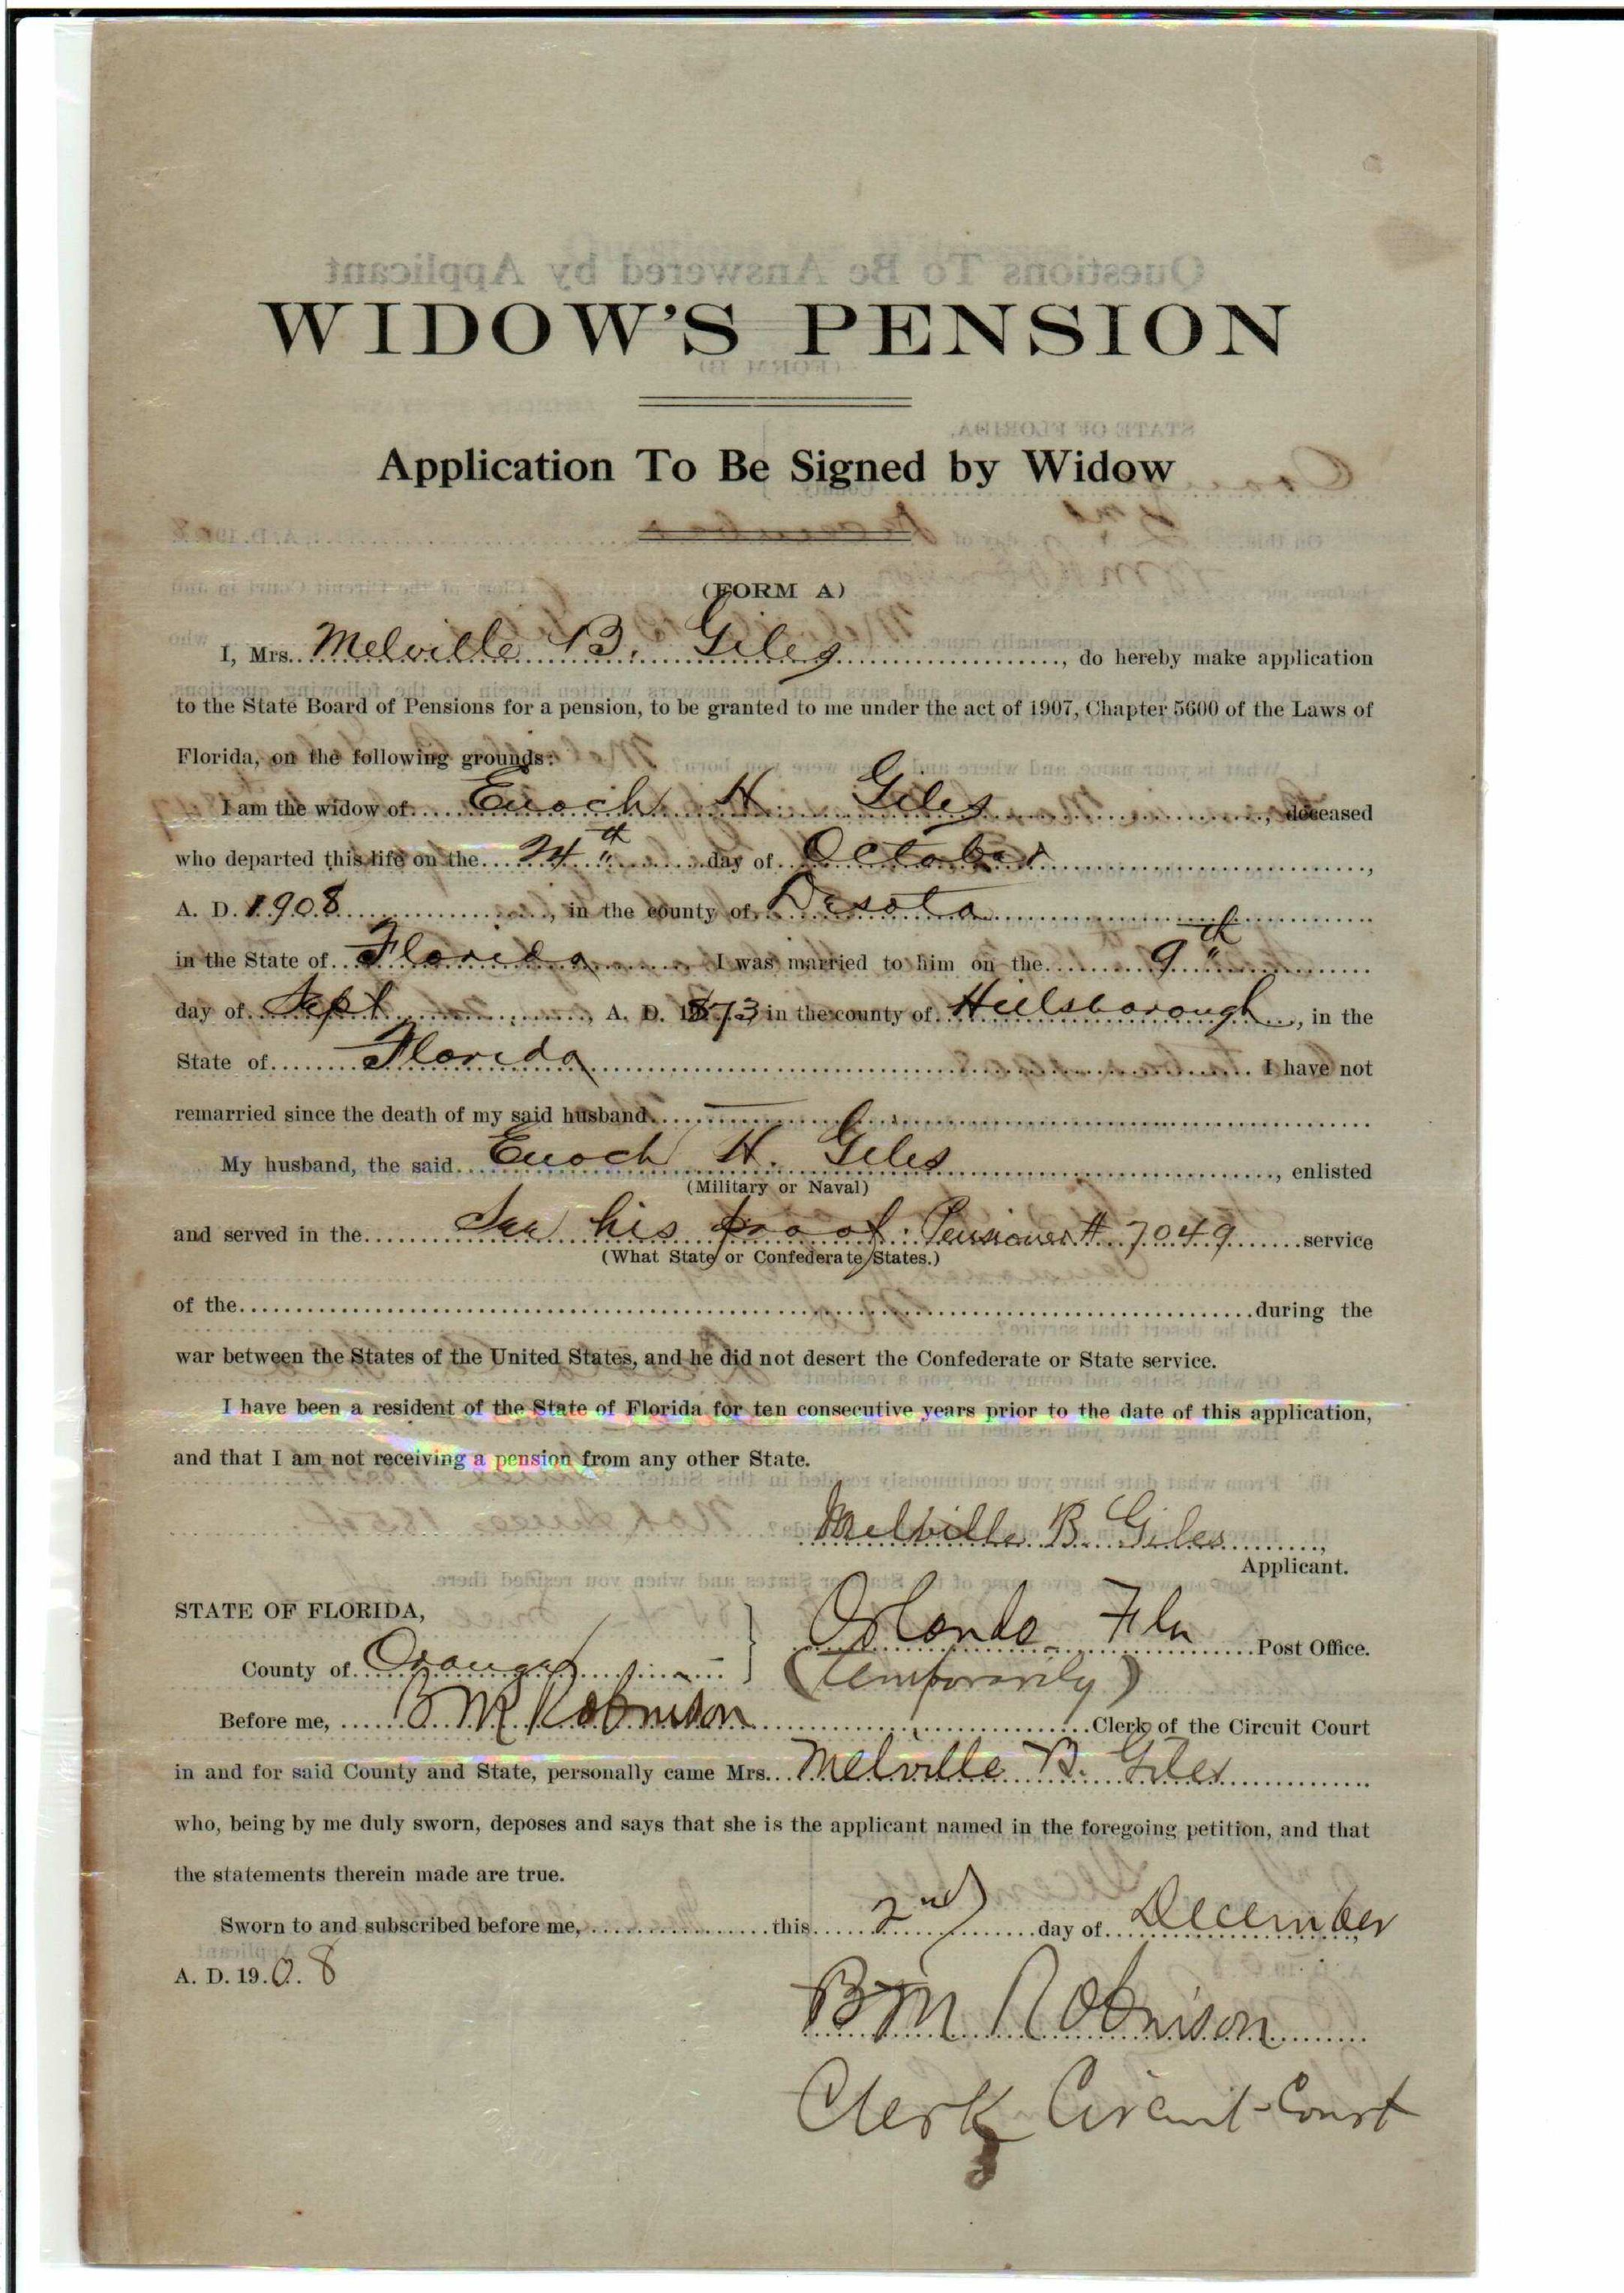 WIDOW'S PENSION
Application To Be Signed by Widow
(FORM A)
I, Mrs. Melville B. Giles, do hereby make application
to the State Board of Pensions for a pension, to be granted to me under the act of 1907, Chapter 5600 of the Laws of
Florida, on the following grounds:
I am the widow of Enoch H. Giles, deceased
who departed this life on the 24th day of October,
A. D. 1908, in the county of Desoto
in the State of Florida. I was married to him on the 9th
day of Sept, A. D. 1873 in the county of Hillsborough, in the
State of Florida I have not
remarried since the death of my said husband.
My husband, the said Enoch H. Giles, enlisted
(Military or Naval)
and served in the See his proof. Pensioner # 7049 service
(What State or Confederate States.)
of the during the
war between the States of the United States, and he did not desert the Confederate or State service.
I have been a resident of the State of Florida for ten consecutive years prior to the date of this application,
and that I am not receiving a pension from any other State.
Melville B. Giles,
Applicant.
STATE OF FLORIDA,
Orlando Fla Post Office.
County of Orange
(temporarily)
Before me, B M Robinson Clerk of the Circuit Court
in and for said County and State, personally came Mrs. Melville B. Giles
who, being by me duly sworn, deposes and says that she is the applicant named in the foregoing petition, and that
the statements therein made are true.
Sworn to and subscribed before me, this 2nd day of December
A. D. 1908
B M Robinson
Clerk Circuit Court